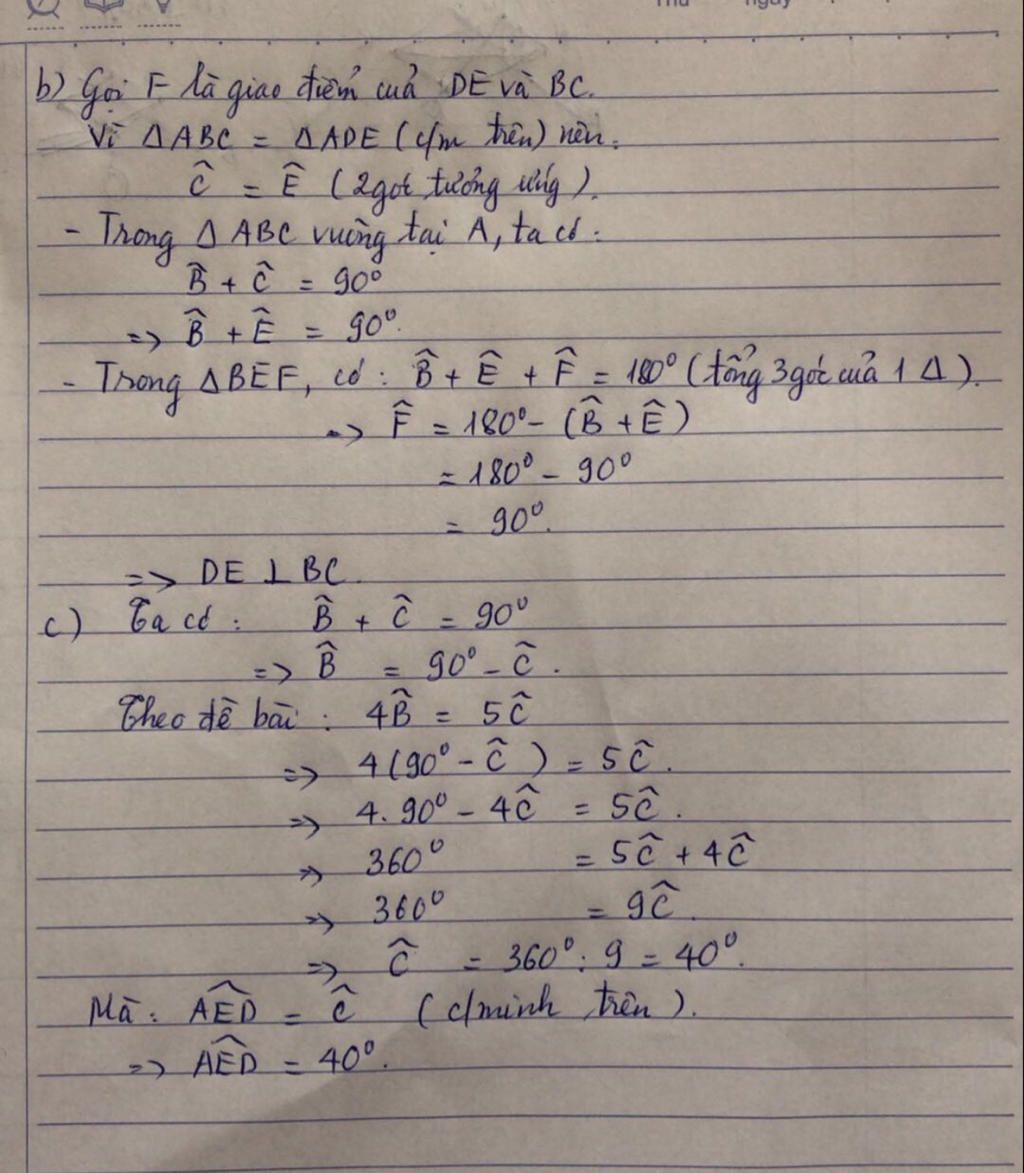 Thứ ngày
b) Gọi F là giao điểm của DE và BC.
Vì ΔABC = ΔADE (c/m trên) nên:
Ĉ = Ê (2 góc tương ứng).
- Trong Δ ABC vuông tại A, ta có:
B̂ + Ĉ = 90⁰
=> B̂ + Ê = 90⁰.
- Trong ΔBEF, có: B̂ + Ê + F̂ = 180⁰ (tổng 3 góc của 1 Δ).
=> F̂ = 180⁰ - (B̂ + Ê)
= 180⁰ - 90⁰
= 90⁰.
=> DE ⊥ BC.
c) Ta có: B̂ + Ĉ = 90⁰
=> B̂ = 90⁰ - Ĉ.
Theo đề bài: 4B̂ = 5Ĉ
=> 4(90⁰ - Ĉ) = 5Ĉ.
=> 4.90⁰ - 4Ĉ = 5Ĉ.
=> 360⁰ = 5Ĉ + 4Ĉ
=> 360⁰ = 9Ĉ.
=> Ĉ = 360⁰ : 9 = 40⁰.
Mà: AED̂ = Ĉ (c/minh trên).
=> AED̂ = 40⁰.